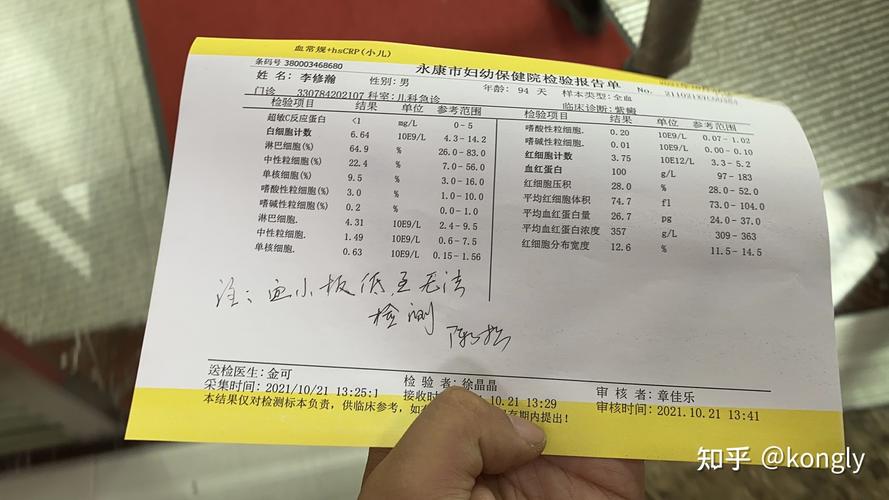 血常规+hsCRP(小儿)
条码号 380003468680
永康市妇幼保健院检验报告单
姓名： 李修瀚 性别：男 年龄： 94 天 样本类型：全血 No.
门诊 330784202107 科室：儿科急诊 临床诊断：紫癜
检验项目 结果 单位 参考范围
超敏C反应蛋白 <1 mg/L 0-5
白细胞计数 6.64 10E9/L 4.3-14.2
淋巴细胞(%) 64.9 % 26.0-83.0
中性粒细胞(%) 22.4 % 7.0-56.0
单核细胞(%) 9.5 % 3.0-16.0
嗜酸性粒细胞(%) 3.0 % 1.0-10.0
嗜碱性粒细胞(%) 0.2 % 0.0-1.0
淋巴细胞. 4.31 10E9/L 2.4-9.5
中性粒细胞. 1.49 10E9/L 0.6-7.5
单核细胞. 0.63 10E9/L 0.15-1.56
检验项目 结果 单位 参考范围
嗜酸性粒细胞. 0.20 10E9/L 0.07-1.02
嗜碱性粒细胞. 0.01 10E9/L 0.00-0.10
红细胞计数 3.75 10E12/L 3.3-5.2
血红蛋白 100 g/L 97-183
红细胞压积 28.0 % 28.0-52.0
平均红细胞体积 74.7 fl 73.0-104.0
平均血红蛋白量 26.7 pg 24.0-37.0
平均血红蛋白浓度 357 g/L 309-363
红细胞分布宽度 12.6 % 11.5-14.5
注：血小板低至无法
检测
送检医生：金可 检验者：徐晶晶 审核者：章佳乐
采集时间：2021/10/21 13:25:1 接收时 .10.21 13:29 审核时间：2021.10.21 13:41
本结果仅对检测标本负责，供临床参考，如 期内提出！
知乎 @kongly